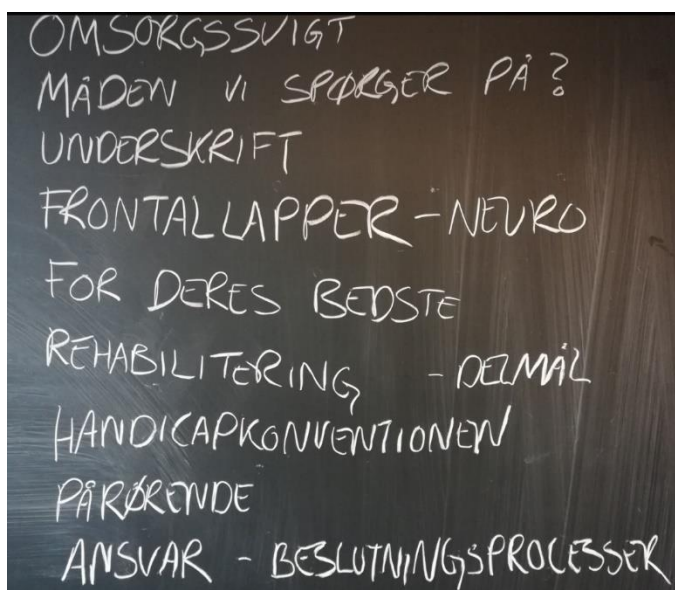 OMSORGSSVIGT
MÅDEN VI SPØRGER PÅ?
UNDERSKRIFT
FRONTALLAPPER - NEURO
FOR DERES BEDSTE
REHABILITERING - DELMÅL
HANDICAPKONVENTIONEN
PÅRØRENDE
ANSVAR - BESLUTNINGSPROCESSER